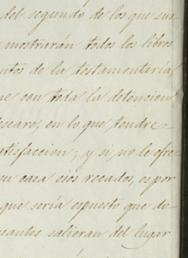 del segundo de los que su
mostrerán todos los libros
utos de la testamentaría
ue con toda la detencion
esearo; en lo que tendre
atisfaccion; y si no le ofre
su casa esos recados, es por
que sería espuesto que du
cuantos salieran del lugar